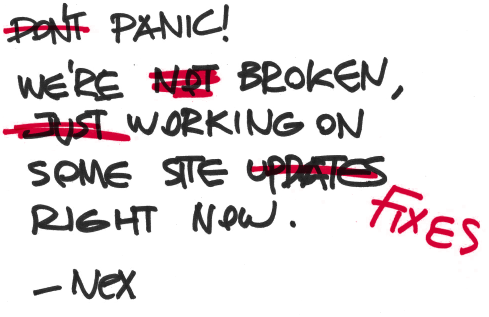 DON'T PANIC!
WE'RE NOT BROKEN,
JUST WORKING ON
SOME SITE UPDATES
FIXES
RIGHT NOW.
—NEX